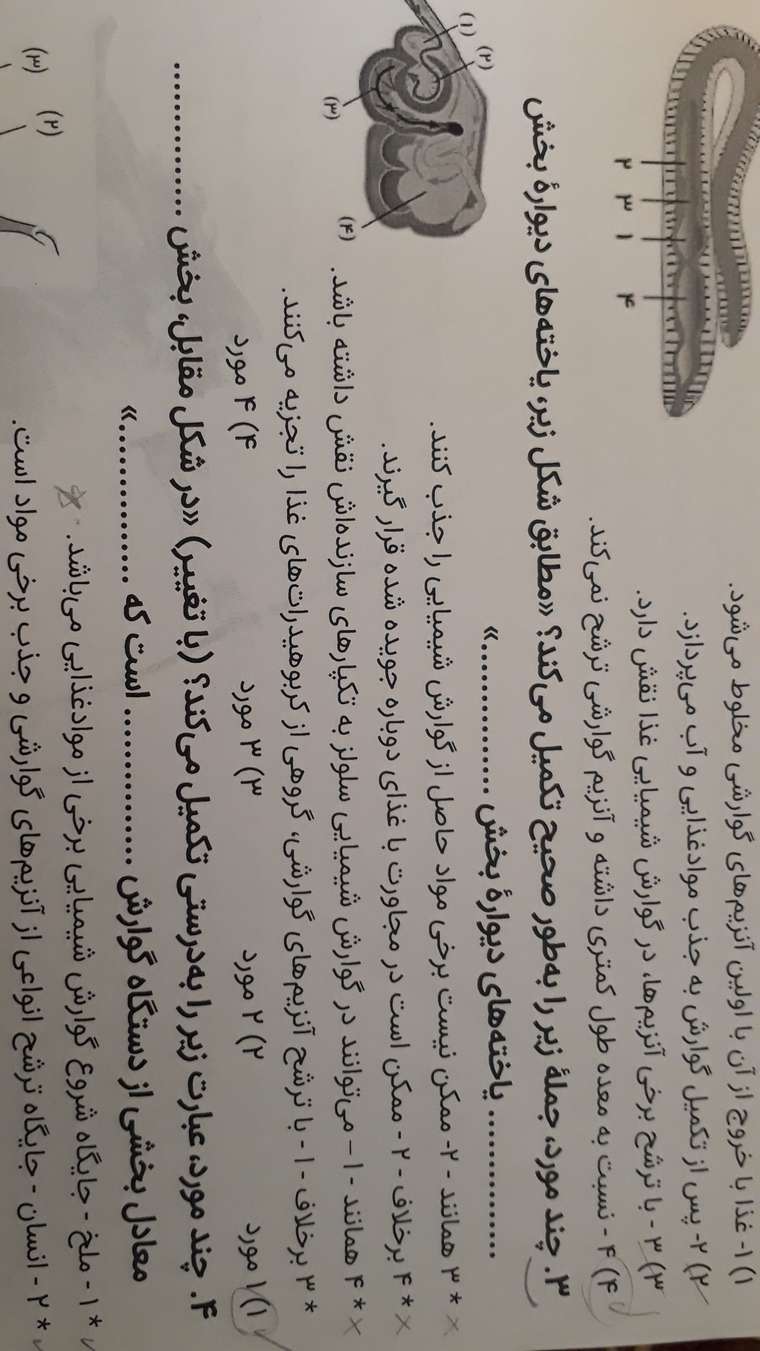 ۱) ۱- غذا با خروج از آن با اولین آنزیم‌های گوارشی مخلوط می‌شود.
۲) ۲- پس از تکمیل گوارش به جذب موادغذایی و آب می‌پردازد.
۳) ۳- با ترشح برخی آنزیم‌ها، در گوارش شیمیایی غذا نقش دارد.
۴) ۴- نسبت به معده طول کمتری داشته و آنزیم گوارشی ترشح نمی‌کند.
۲
۳
۱
۴
۳. چند مورد، جملهٔ زیر را به‌طور صحیح تکمیل می‌کند؟ «مطابق شکل زیر، یاخته‌های دیوارهٔ بخش
............... یاخته‌های دیوارهٔ بخش ...............»
* ۳ همانند - ۲- ممکن نیست برخی مواد حاصل از گوارش شیمیایی را جذب کنند.
* ۴ برخلاف - ۲ - ممکن است در مجاورت با غذای دوباره جویده شده قرار گیرند.
* ۴ همانند - ۱ - می‌توانند در گوارش شیمیایی سلولز به تکپارهای سازنده‌اش نقش داشته باشد.
* ۳ برخلاف - ۱ - با ترشح آنزیم‌های گوارشی، گروهی از کربوهیدرات‌های غذا را تجزیه می‌کنند.
(۱)
(۲)
(۳)
(۴)
۱) ۱ مورد ۲) ۲ مورد ۳) ۳ مورد ۴) ۴ مورد
۴. چند مورد، عبارت زیر را به‌درستی تکمیل می‌کند؟ (با تغییر) «در شکل مقابل، بخش ...............
معادل بخشی از دستگاه گوارش ............... است که ...............»
* ۱ - ملخ - جایگاه شروع گوارش شیمیایی برخی از موادغذایی می‌باشد.
* ۲ - انسان - جایگاه ترشح انواعی از آنزیم‌های گوارشی و جذب برخی مواد است.
(۳)
(۲)